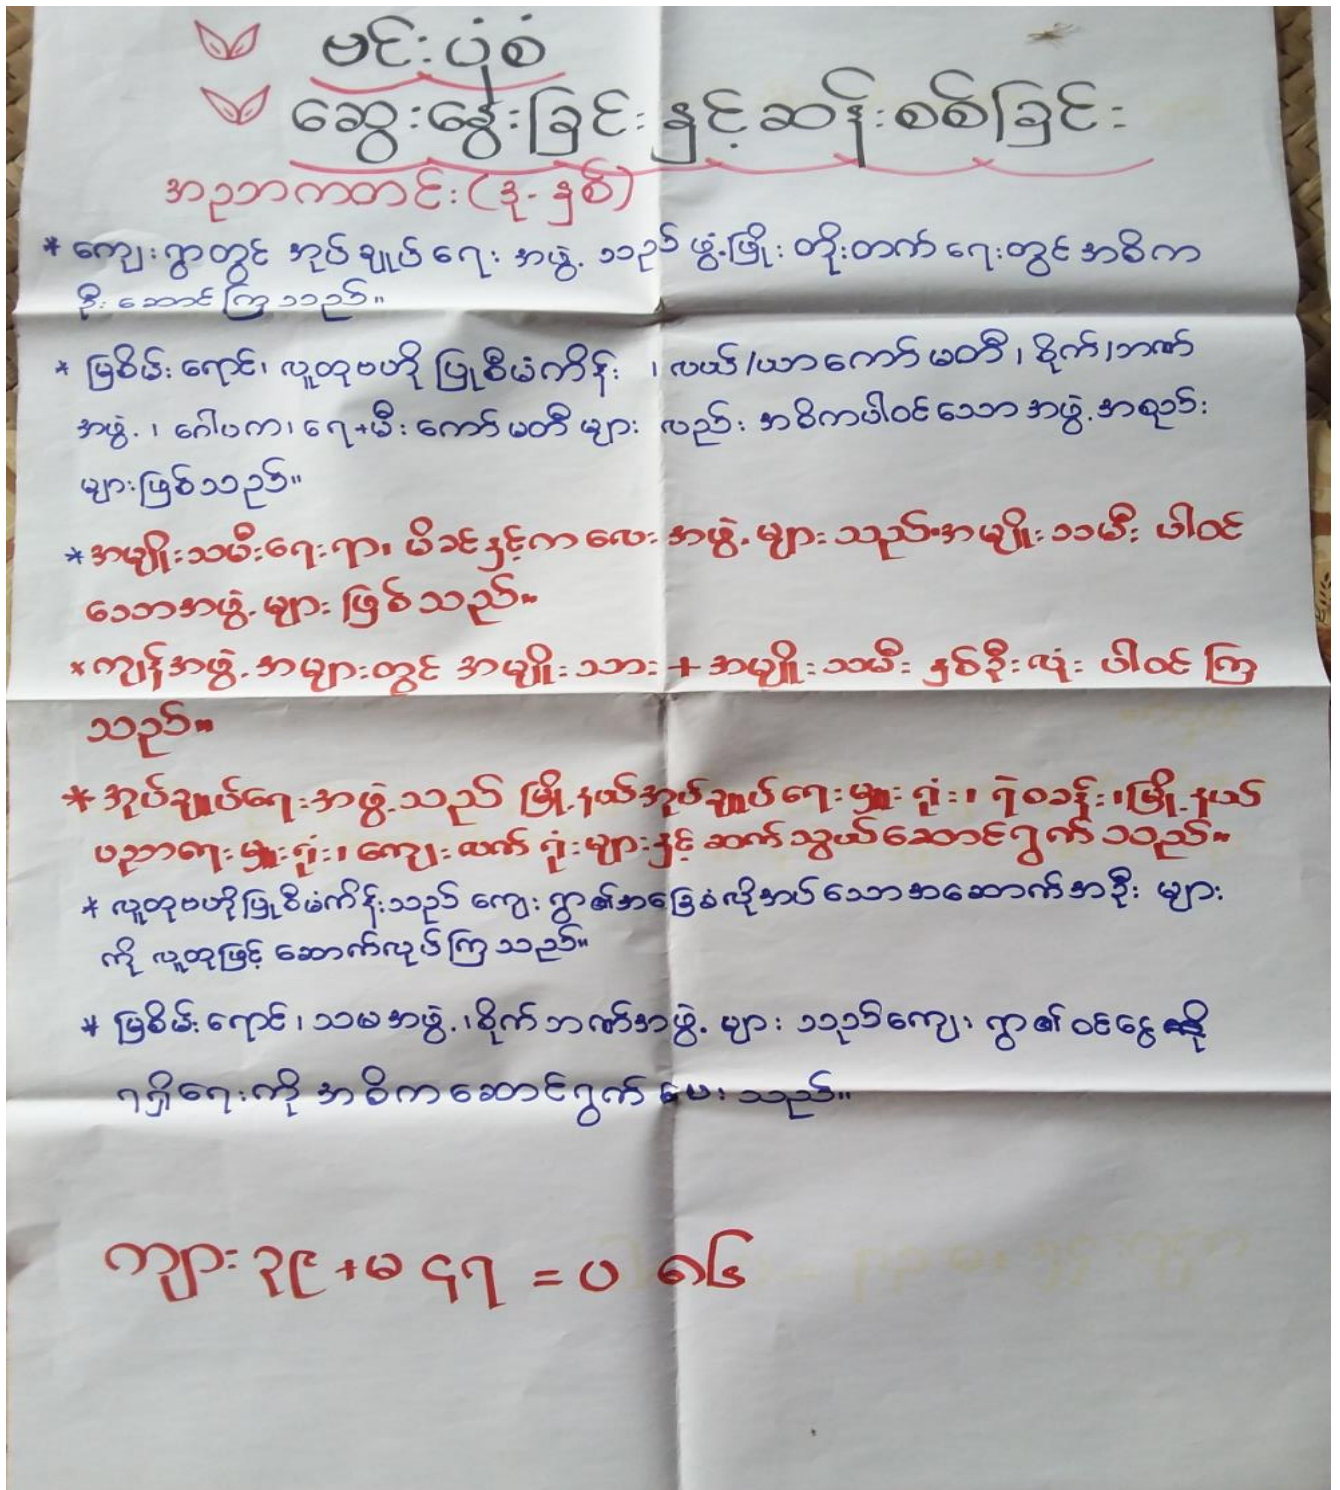 ဗင်းပုံစံ
ဆွေးနွေးခြင်းနှင့်ဆန်းစစ်ခြင်း
အညာကတင်း(ဒု-နှစ်)
* ကျေးရွာတွင် အုပ်ချုပ်ရေး အဖွဲ့ သည် ဖွံ့ဖြိုး တိုးတက်ရေးတွင် အဓိက
ဦးဆောင်ကြသည်။
* မြစိမ်းရောင်၊ လူထုဗဟိုပြုစီမံကိန်း ၊ လယ်/ယာကော်မတီ၊ စိုက်/ဘဏ်
အဖွဲ့၊ ဂေါပက၊ ရေ+မီးကော်မတီများ လည်း အဓိကပါဝင်သောအဖွဲ့အစည်း
များဖြစ်သည်။
* အမျိုးသမီးရေးရာ၊ မိခင်နှင့်ကလေးအဖွဲ့များ သည် အမျိုးသမီး ပါဝင်
သောအဖွဲ့များ ဖြစ်သည်။
* ကျန်အဖွဲ့အများတွင် အမျိုးသား + အမျိုးသမီး နှစ်ဦးလုံး ပါဝင်ကြ
သည်။
* အုပ်ချုပ်ရေးအဖွဲ့သည် မြို့နယ်အုပ်ချုပ်ရေးမှူးရုံး၊ ရဲစခန်း၊ မြို့နယ်
ပညာရေးမှူးရုံး၊ ကျေးလက်ရုံးများနှင့် ဆက်သွယ်ဆောင်ရွက်သည်။
* လူထုဗဟိုပြုစီမံကိန်းသည် ကျေးရွာ၏အခြေခံလိုအပ်သောအဆောက်အဦး များ
ကို လူထုဖြင့် ဆောက်လုပ်ကြသည်။
* မြစိမ်းရောင်၊ သမအဖွဲ့၊ စိုက်ဘဏ်အဖွဲ့ များ သည်ကျေးရွာ၏ ဝင်ငွေ
ရရှိရေးကို အဓိကဆောင်ရွက်ပေးသည်။
ကျား ၃၉ + မ ၄၇ = ပ ၈၆